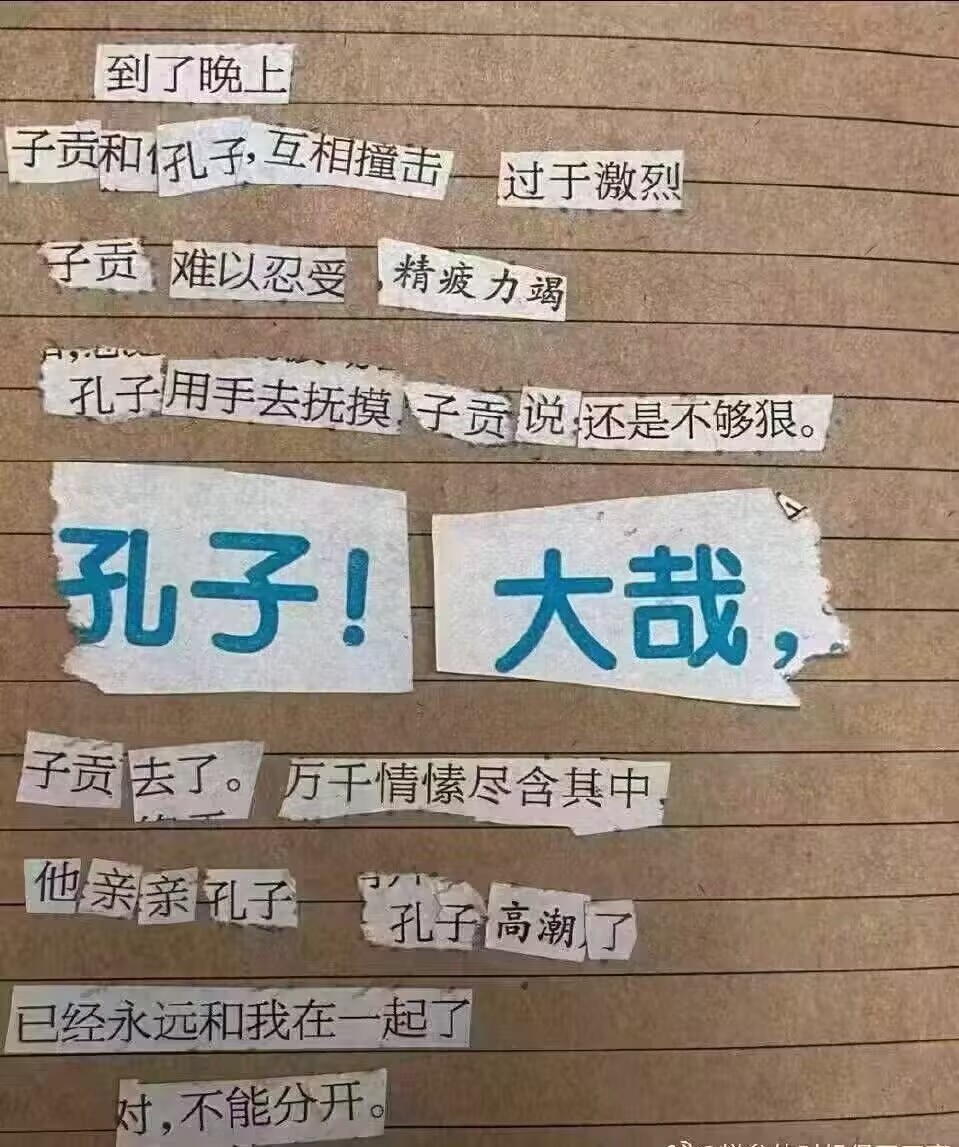 到了晚上
子贡和孔子，互相撞击 过于激烈
子贡 难以忍受 精疲力竭
孔子用手去抚摸 子贡说：还是不够狠。
孔子！ 大哉，
子贡去了。 万千情愫尽含其中
他亲亲孔子 孔子高潮了
已经永远和我在一起了
对，不能分开。